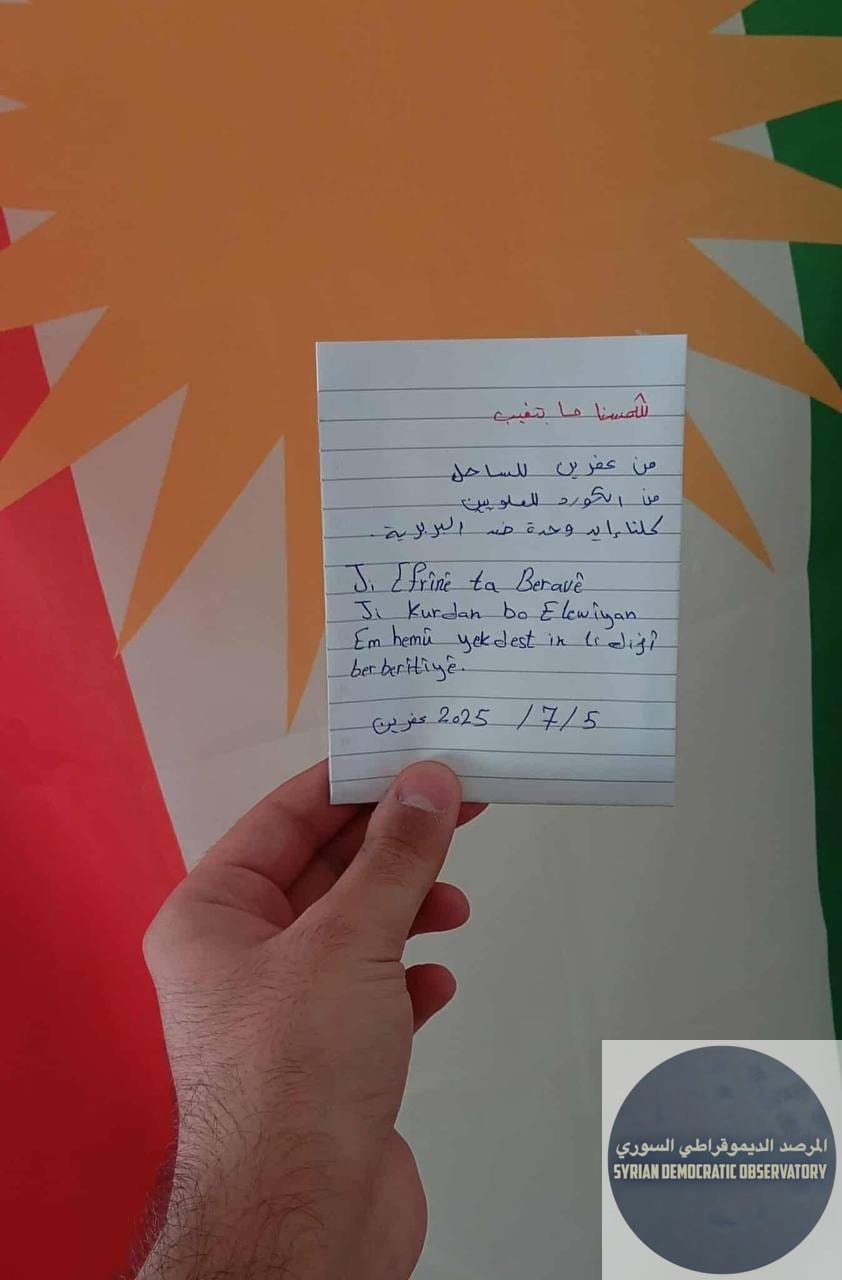 شمسنا ما بتغيب
من عفرين للساحل
من الكورد للعلويين
كلنا إيد وحدة ضد البربرية.
Ji Efrînê ta Beravê
Ji Kurdan bo Elewîyan
Em hemû yekdest in li dijî
berberîtîyê.
5/7/2025 عفرين
المرصد الديموقراطي السوري
SYRIAN DEMOCRATIC OBSERVATORY